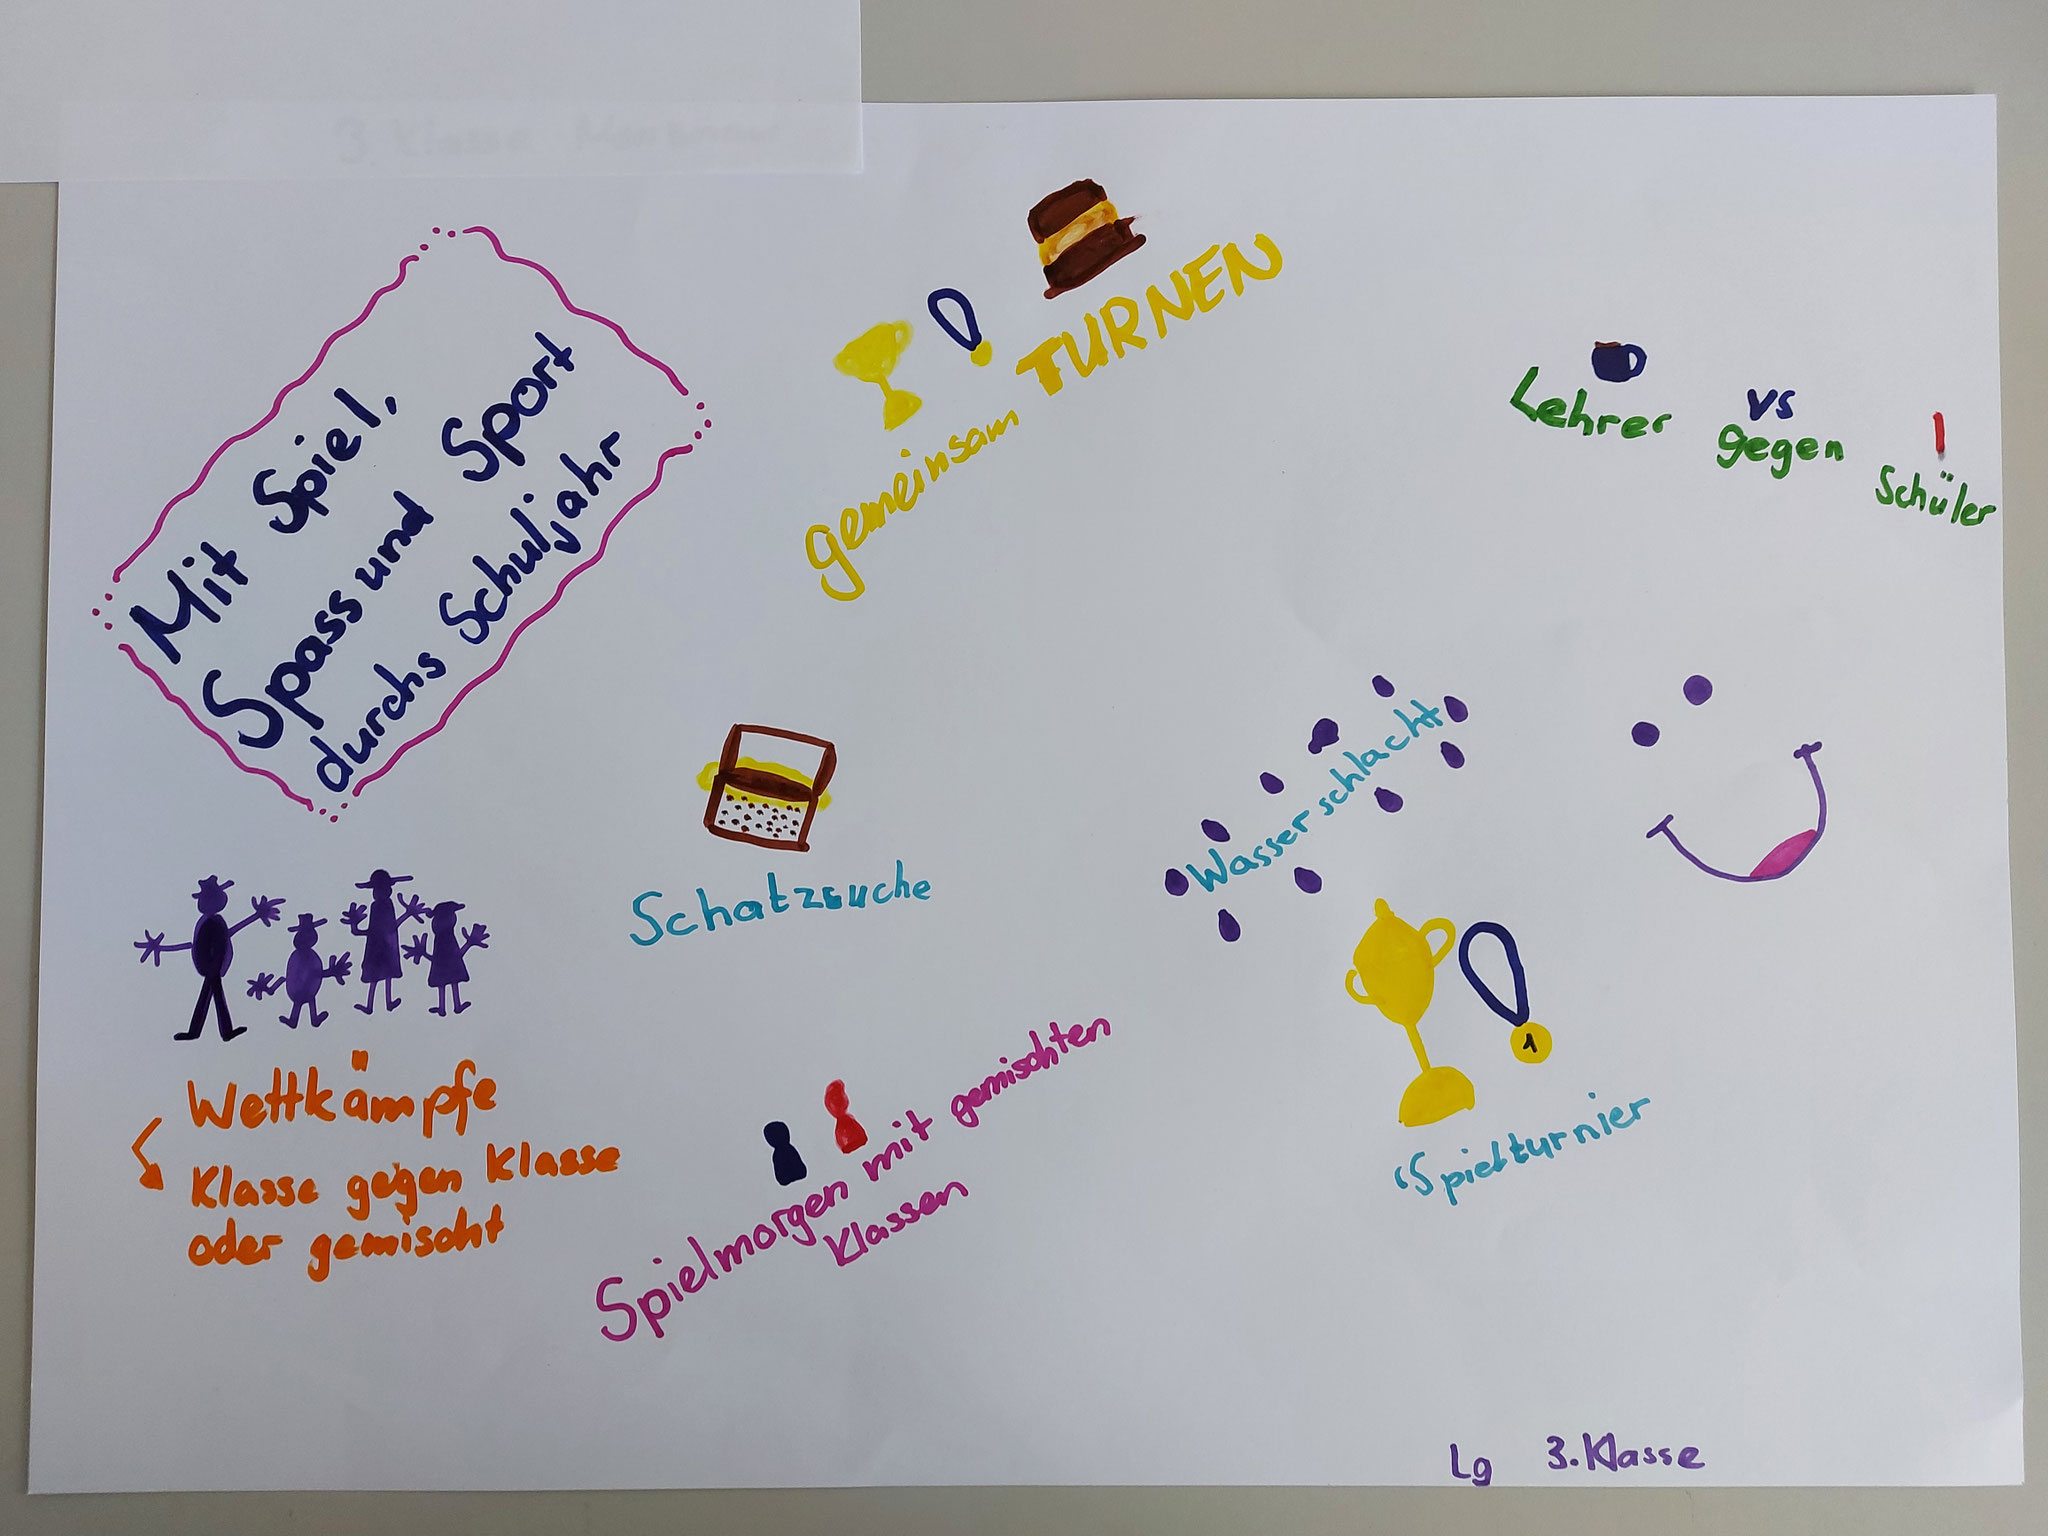 3. Klasse
Mit Spiel,
Spass und Sport
durchs Schuljahr
gemeinsam TURNEN
Lehrer
vs
gegen
Schüler
Schatzsuche
Wasserschlacht
Wettkämpfe
Klasse gegen Klasse
oder gemischt
Spielmorgen mit gemischten
Klassen
1
Spielturnier
Lg 3. Klasse